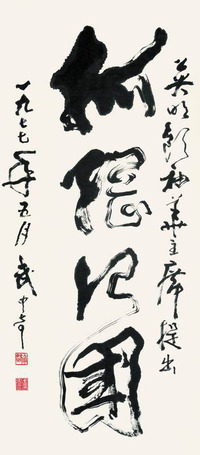 英明領袖華主席提出
抓綱治國
一九七七年五月 武中奇